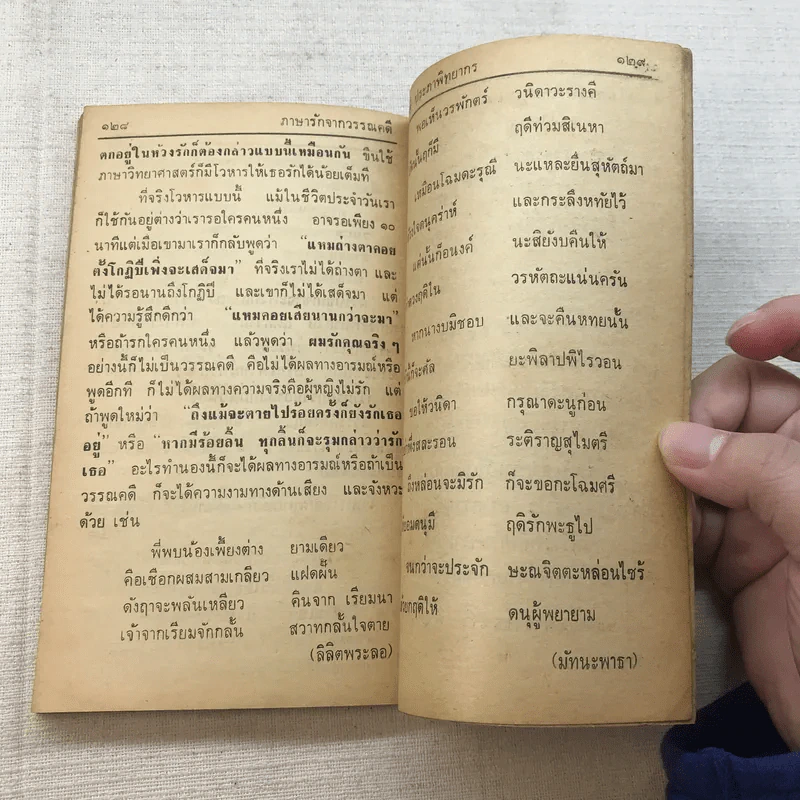 ๑๒๘ ภาษารักจากวรรณคดี
ตกอยู่ในห้วงรักก็ต้องกล่าวแบบนี้เหมือนกัน ขืนใช้
ภาษาวิทยาศาสตร์ก็มีโวหารให้เธอรักได้น้อยเต็มที
ที่จริงโวหารแบบนี้ แม้ในชีวิตประจำวันเรา
ก็ใช้กันอยู่ต่างว่าเรารอใครคนหนึ่ง อาจรอเพียง ๑๐
นาทีแต่เมื่อเขามาเราก็กลับพูดว่า “แหมถ่างตาคอย
ตั้งโกฏิปีเพิ่งจะเสด็จมา” ที่จริงเราไม่ได้ถ่างตา และ
ไม่ได้รอนานถึงโกฏิปี และเขาก็ไม่ได้เสด็จมา แต่
ได้ความรู้สึกดีกว่า “แหมคอยเสียนานกว่าจะมา”
หรือถ้ารักใครคนหนึ่ง แล้วพูดว่า ผมรักคุณจริง ๆ
อย่างนี้ก็ไม่เป็นวรรณคดี คือไม่ได้ผลทางอารมณ์หรือ
พูดอีกที ก็ไม่ได้ผลทางความจริงคือผู้หญิงไม่รัก แต่
ถ้าพูดใหม่ว่า “ถึงแม้จะตายไปร้อยครั้งก็ยังรักเธอ
อยู่” หรือ “หากมีร้อยลิ้น ทุกลิ้นก็จะรุมกล่าวว่ารัก
เธอ” อะไรทำนองนี้ก็จะได้ผลทางอารมณ์หรือถ้าเป็น
วรรณคดี ก็จะได้ความงามทางด้านเสียง และจังหวะ
ด้วย เช่น
พี่พบน้องเพี้ยงต่าง ยามเดียว
คือเชือกผสมสามเกลียว แฝดฝั้น
ดังฤาจะพลันเหลียว คืนจาก เรียมนา
เจ้าจากเรียมจักกลั้น สวาทกลั้นใจตาย
(ลิลิตพระลอ)
ประภาพิทยากร ๑๒๙
พอเห็นวรพักตร์ วนิดาวะรางคี
ฤดีท่วมสิเนหา
เหมือนโฉมดะรุณี นะแหละยื่นสุหัตถ์มา
และกระลึงหทัยไว้
แต่นั้นก็อนงค์ นะสิยังบคืนให้
วรหัตถะแน่นครัน
หากนางบมิชอบ และจะคืนหทยนั้น
ยะพิลาปพิไรวอน
ขอให้วนิดา กรุณาตะนูก่อน
ระติราญสุไมตรี
ถึงหล่อนจะมิรัก ก็จะขอกะโฉมศรี
ฤดิรักพะธูไป
จนกว่าจะประจัก ษะณจิตตะหล่อนไซร้
ดนุผู้พยายาม
(มัทนะพาธา)